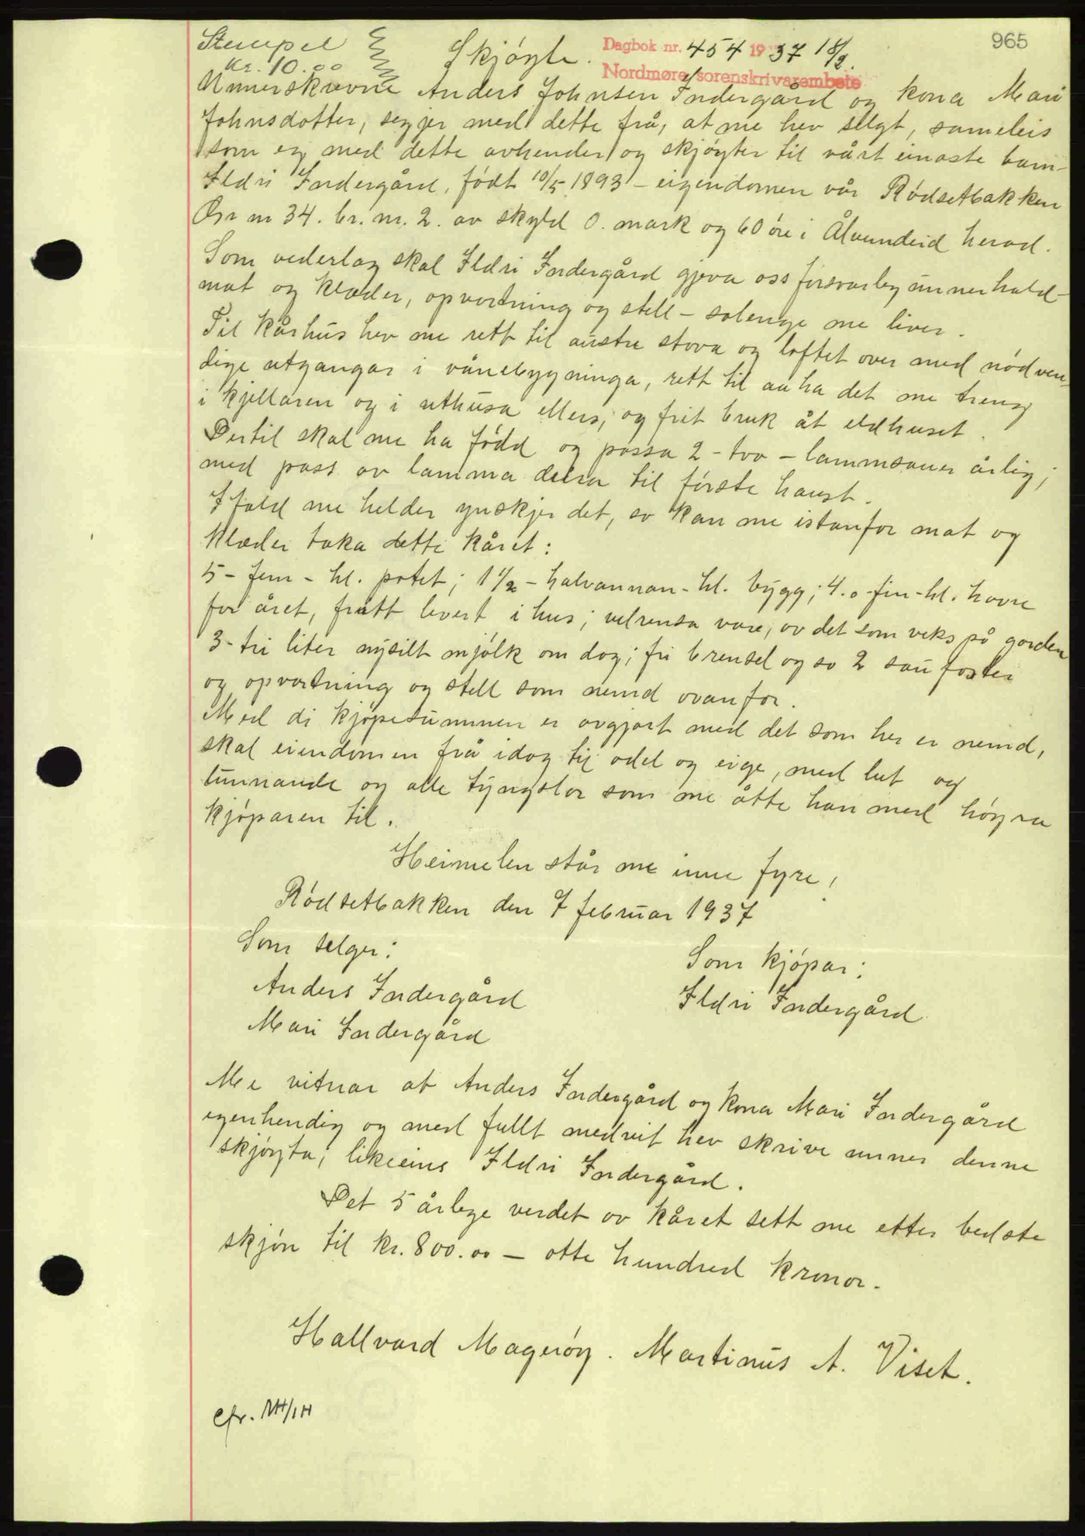 965
Stempel
kr. 10.00
Skjøyte.
Dagbok nr. 454 1937 18/2.
Nordmøre sorenskriverembete
Unnerskrivne Anders Johnsen Indergård og kona Mari
Johnsdotter, segjer med dette frå, at me hev selgt, sameleis
som eg med dette avhender og skjøyter til vårt einaste barn-
Ildri Indergård, født 10/5 1893 - eigendomen vår Rødsetbakken
Gr nr 34. br. nr. 2. av skyld 0. mark og 60 øre i Ålvundeid herad.
Som vederlag skal Ildri Indergård gjeva oss forsvarleg unnerhald-
mat og klæder, opvartning og stell - solenge me liver.
Til kårhus hev me rett til austre stova og loftet over med nødven-
dige utgangar i vånebygninga, rett til aa ha det me treng
i kjellaren og i uthusa ellers, og frit bruk åt eldhuset.
Dertil skal me ha fødd og passa 2 - tvo - lammsauer årleg;
med pass av lamma deira til første haust.
Ifald me helder ynskjer det, so kan me istanfor mat og
klæder taka dette kåret:
5 - fem - hl. potet; 1 1/2 - halvannan - hl. bygg; 4.0 - fire - hl. havre
for året, fritt levert i hus; velrensa vare, av det som veks på garden
3 - tri liter nysilt mjølk om dag; fri brensel og so 2 saufoster
og opvartning og stell som nemd ovanfor.
Med di kjøpesummen er avgjort med det som her er nemd,
skal eiendomen frå idag til odel og eige, med lut og
lunnande og alle tyngslor som me åtte han med høyra
kjøparen til.
Heimelen står me inne fyre!
Rødsetbakken den 7 februar 1937
Som selger:
Som kjøpar:
Anders Indergård
Ildri Indergård
Mari Indergård
Me vitnar at Anders Indergård og kona Mari Indergård
egenhendig og med fullt medvit hev skrive unner denne
skjøyta; likeeins Ildri Indergård.
Det 5 årlege verdet av kåret sett me etter bedste
skjøn til kr. 800.00 - otte hundred kronor.
Hallvard Magerøy. Martinus A. Viset.
Cfr. MH/IH